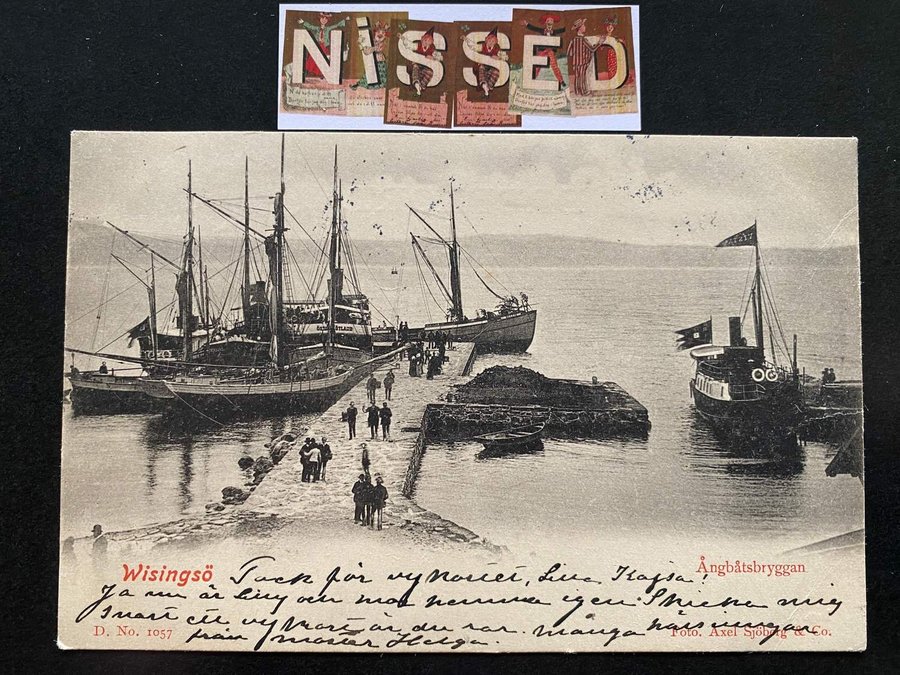 NiSSED
ÖSTERGÖTLAND
Wisingsö
Ångbåtsbryggan
Tack för vykortet, Lilla Kajsa!
Ja nu är Lilly och mor hemma igen. Skicka mig
snart ett vykort är du rar. Många hälsningar
från moster Helga.
D. No. 1057
Foto. Axel Sjöberg & Co.